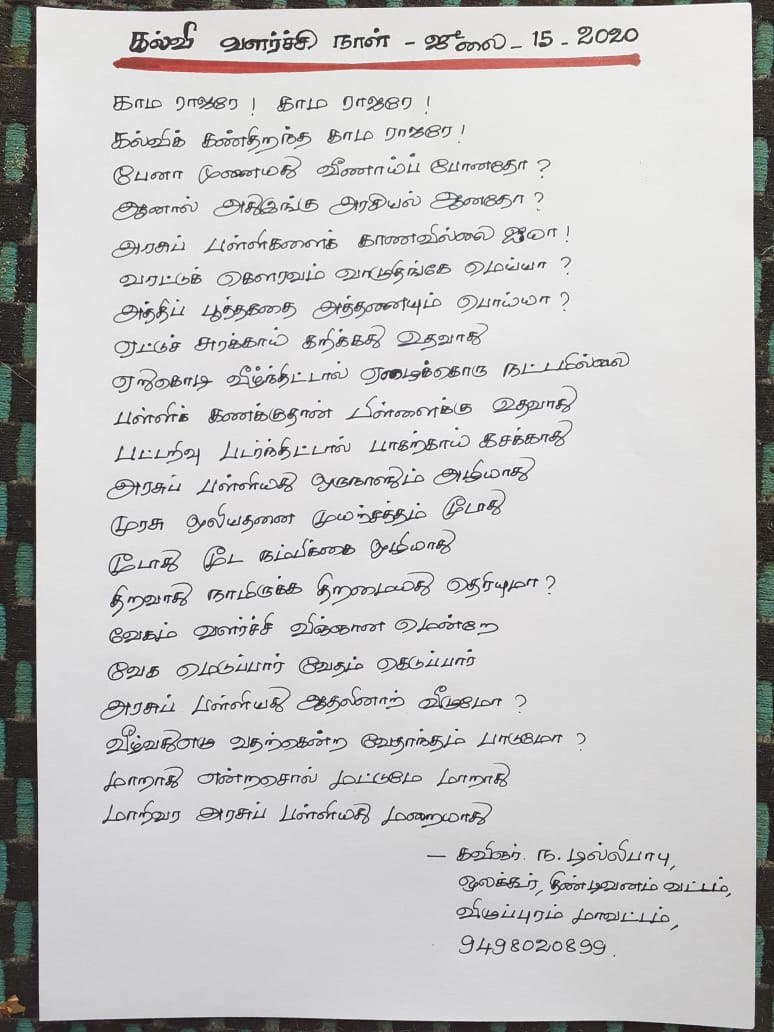 கல்வி வளர்ச்சி நாள் - ஜூலை - 15 - 2020
காம ராஜரே ! காம ராஜரே !
கல்விக் கண்திறந்த காம ராஜரே !
பேனா முணைமது வீணாய்ப் போனதோ ?
ஆனால் அதுஇங்கு அரசியல் ஆனதோ ?
அரசுப் பள்ளிகளைக் காணவில்லை ஐயா !
வரட்டுக் கௌரவம் வாடுதிங்கே மெய்யா ?
அத்திப் பூத்தகதை அத்தணையும் பொய்யா ?
ஏட்டுச் சுரக்காய் கறிக்கது உதவாது
ஏறுகொடி வீழ்ந்திட்டால் ஏழைக்கொரு நட்டமில்லை
பள்ளிக் கணக்குதான் பிள்ளைக்கு உதவாது
பட்டறிவு படர்ந்திட்டால் பாகற்காய் கசக்காது
அரசுப் பள்ளியது ஒருநாளும் அழியாது
முரசு ஒலியதனை முயற்சத்தம் மூடாது
மூடாது மூட நம்பிக்கை ஒழியாது
திறவாது நாமிருக்க திறமையது தெரியுமா ?
வேகம் வளர்ச்சி விஞ்ஞான மென்றே
வேக மெடுப்பார் வேதம் கெடுப்பார்
அரசுப் பள்ளியது ஆதலினாற் வீடுமோ ?
வீழ்வது வதற்கென்ற வேதாந்தம் பாடுமோ ?
மாறாது என்றசொல் மட்டுமே மாறாது
மாறிவர அரசுப் பள்ளியது மறையாது
- கவிஞர். ந. டில்லிபாபு,
ஒலக்கூர், திண்டிவனம் வட்டம்,
விழுப்புரம் மாவட்டம்,
9498020899.